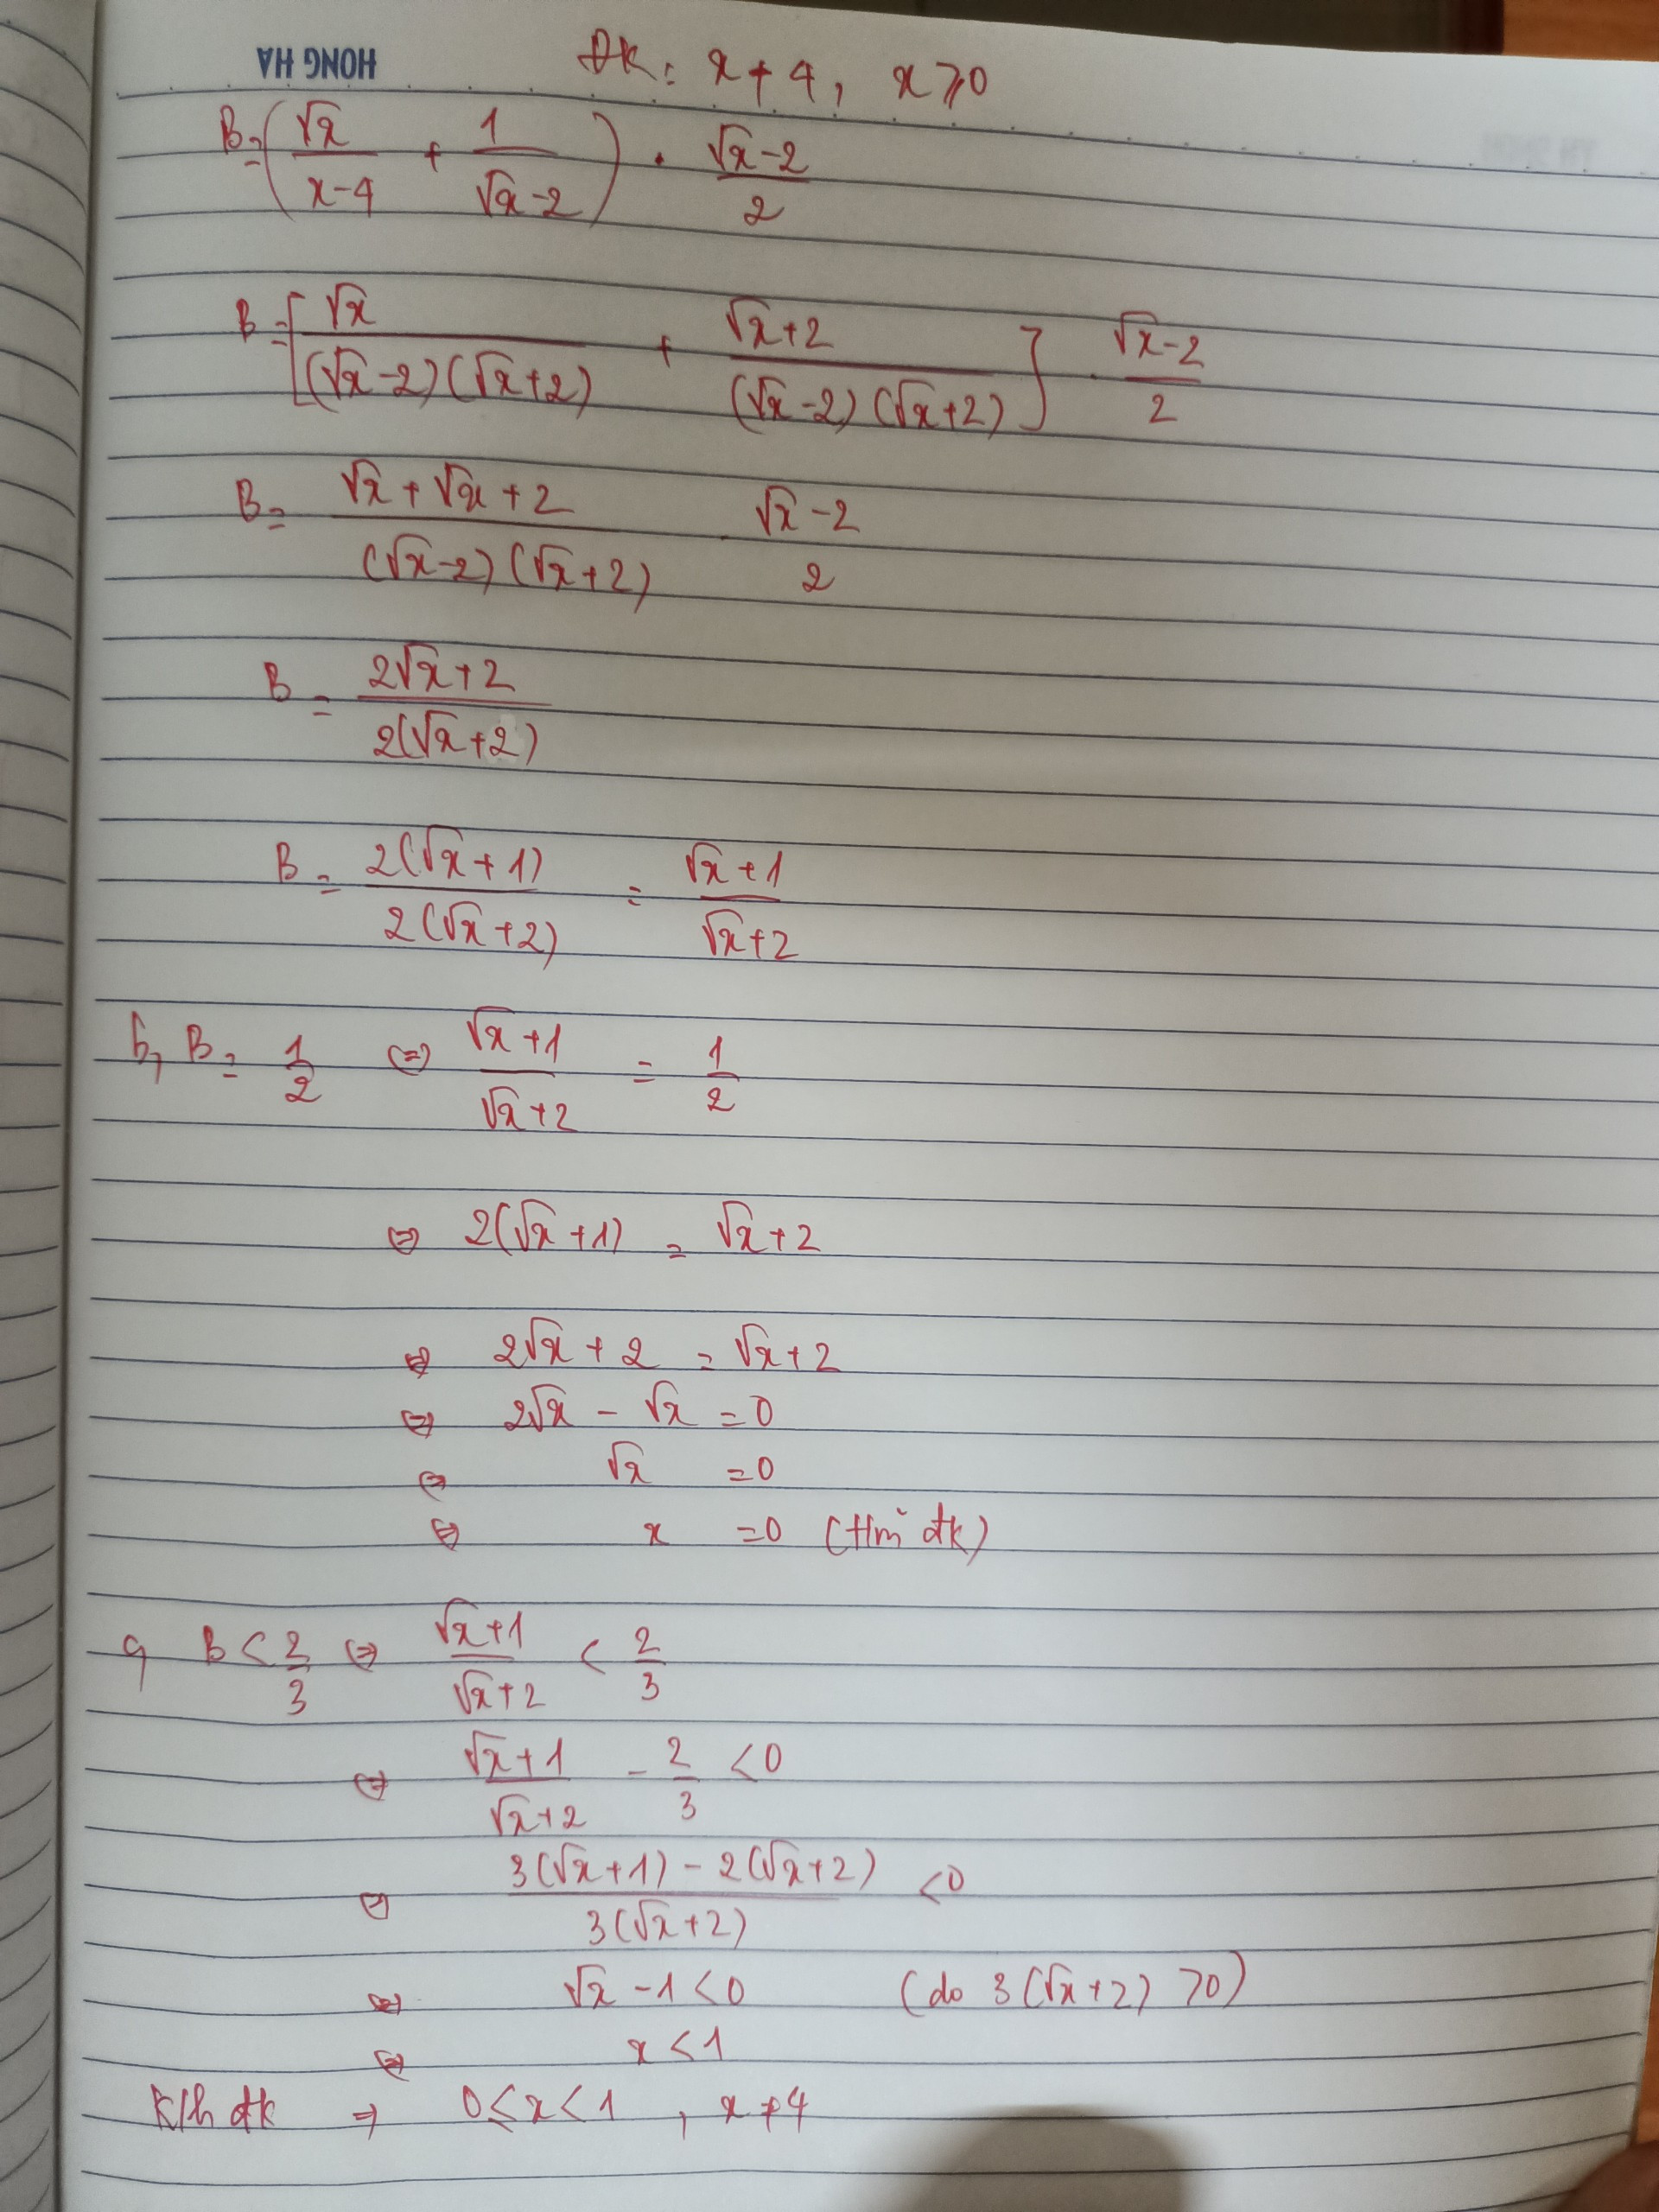 HONG HA
Đk: x ≠ 4, x ⩾ 0
B = (√x/(x-4) + 1/(√x-2)) · (√x-2)/2
B = [√x/((√x-2)(√x+2)) + (√x+2)/((√x-2)(√x+2))] · (√x-2)/2
B = (√x+√x+2)/((√x-2)(√x+2)) · (√x-2)/2
B = (2√x+2)/(2(√x+2))
B = 2(√x+1)/(2(√x+2)) = (√x+1)/(√x+2)
b, B = 1/2 ⇔ (√x+1)/(√x+2) = 1/2
⇔ 2(√x+1) = √x+2
⇔ 2√x + 2 = √x+2
⇔ 2√x - √x = 0
⇔ √x = 0
⇔ x = 0 (t/m đk)
c, B < 2/3 ⇔ (√x+1)/(√x+2) < 2/3
⇔ (√x+1)/(√x+2) - 2/3 < 0
⇔ (3(√x+1) - 2(√x+2))/(3(√x+2)) < 0
⇔ √x - 1 < 0 (do 3(√x+2) > 0)
⇔ x < 1
k/h đk ⇒ 0 ≤ x < 1, x ≠ 4